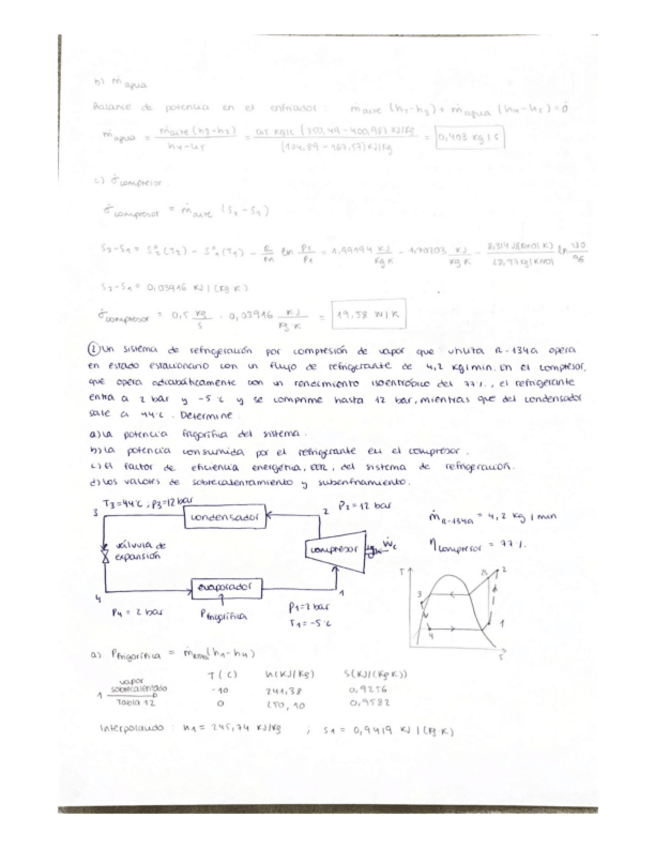 b) ṁ agua
Balance de potencia en el enfriador : ṁaire (h2-h3) + ṁagua (h4-h5) = 0
ṁagua = ṁaire (h3-h2) / h4-h5 = 0,5 kg/s (350,49-400,98) kJ/kg / (104,89-167,57) kJ/kg = 0,403 kg/s
c) σ̇compresor
σ̇compresor = ṁaire (s2-s1)
s2-s1 = s°2(T2) - s°1(T1) - R/m ln p2/p1 = 1,99194 kJ/kg K - 1,70203 kJ/kg K - 8,314 kJ/(kmol K) / 28,97 kg/kmol ln
s2-s1 = 0,03916 kJ/(kg K)
σ̇compresor = 0,5 kg/s · 0,03916 kJ/kg K = 19,58 W/K
② Un sistema de refrigeración por compresión de vapor que utiliza R-134a opera
en estado estacionario con un flujo de refrigerante de 4,2 kg/min. En el compresor,
que opera adiabáticamente con un rendimiento isoentrópico del 77%, el refrigerante
entra a 2 bar y -5°C y se comprime hasta 12 bar, mientras que del condensador
sale a 44°C. Determine
a) La potencia frigorífica del sistema.
b) La potencia consumida por el refrigerante en el compresor.
c) El factor de eficiencia energética, EER, del sistema de refrigeración.
d) Los valores de sobrecalentamiento y subenfriamiento.
T3=44°C ; p3=12 bar
3
condensador
2
P2=12 bar
válvula de
expansión
compresor
Ẇc
ṁR-134a = 4,2 kg/min
ηcompresor = 77%
evaporador
4
1
P4 = 2 bar
Pfrigorífica
P1=2 bar
T1=-5°C
T
2s
2
3
4
1
S
a) Pfrigorífica = ṁR134a (h1-h4)
T(°C) h(kJ/kg) s(kJ/(kg K))
1 vapor sobrecalentado -10 241,38 0,9256
Tabla 12 0 250,10 0,9582
Interpolando : h1 = 245,74 kJ/kg ; s1 = 0,9419 kJ/(kg K)